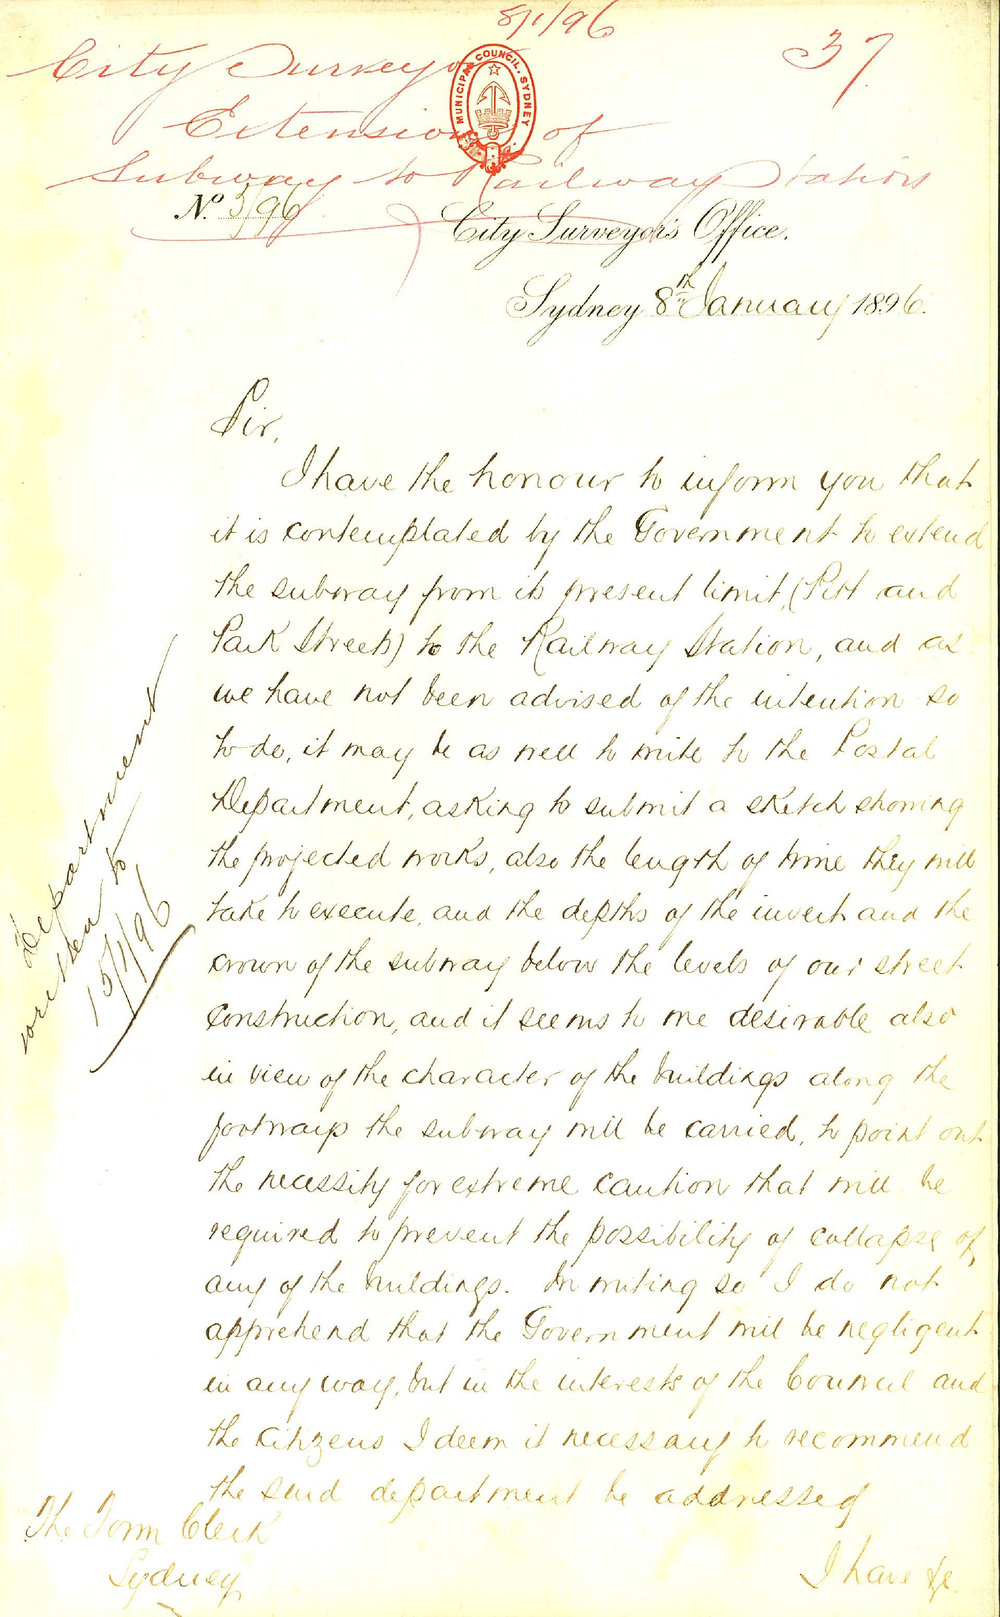 8/1/96
37
City Surveyor
Extension of
Subway to Railway Station
MUNICIPAL COUNCIL. SYDNEY
No. 3/96
City Surveyor's Office.
Sydney 8th January 1896.
Sir,
I have the honour to inform you that
it is contemplated by the Government to extend
the subway from its present limit, (Pitt and
Park Streets) to the Railway Station, and as
we have not been advised of the intention so
to do, it may be as well to write to the Postal
Department, asking to submit a sketch showing
the projected works, also the length of time they will
take to execute, and the depths of the invert and the
crown of the subway below the levels of our street
construction, and it seems to me desirable also
in view of the character of the buildings along the
footways the subway will be carried, to point out
the necessity for extreme caution that will be
required to prevent the possibility of collapse of
any of the buildings. In writing so I do not
apprehend that the Government will be negligent
in any way, but in the interests of the Council and
the citizens I deem it necessary to recommend
the said department be addressed
I have &c.
The Town Clerk
Sydney
Department
written to
15/1/96